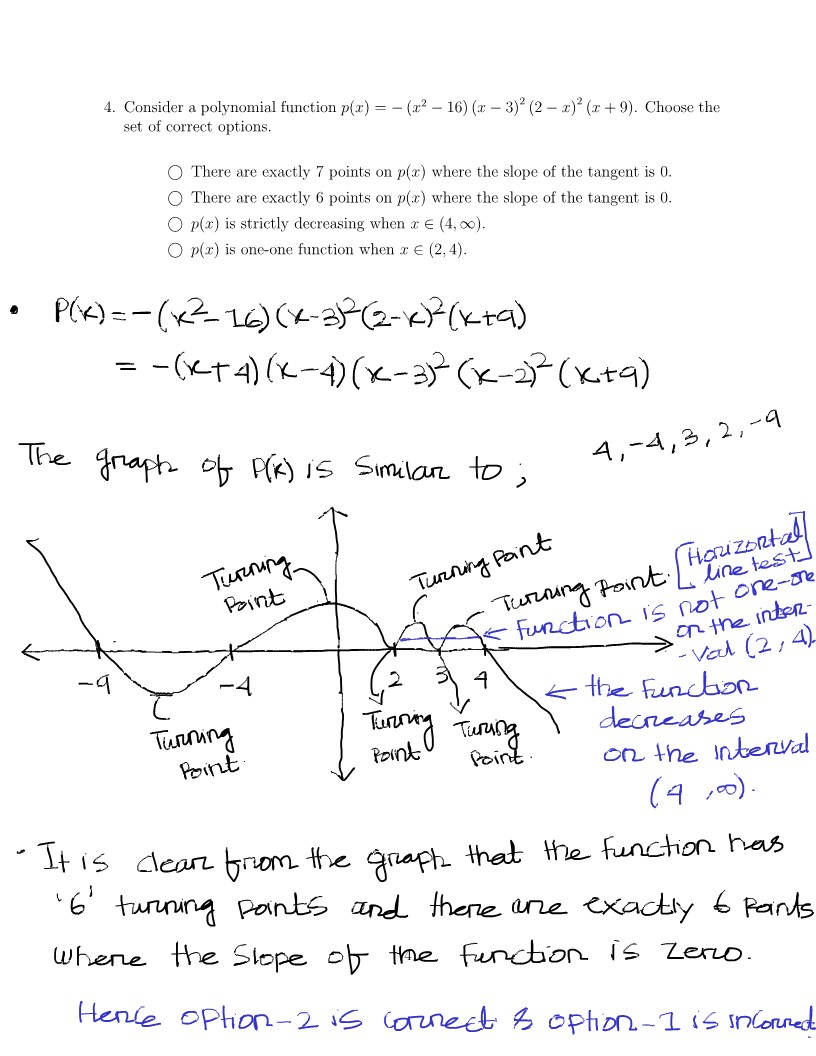 4. Consider a polynomial function p(x) = − (x² − 16) (x − 3)² (2 − x)² (x + 9). Choose the
set of correct options.
○ There are exactly 7 points on p(x) where the slope of the tangent is 0.
○ There are exactly 6 points on p(x) where the slope of the tangent is 0.
○ p(x) is strictly decreasing when x ∈ (4, ∞).
○ p(x) is one-one function when x ∈ (2, 4).
• P(x) = −(x²−16)(x−3)²(2−x)²(x+9)
= −(x+4)(x−4)(x−3)²(x−2)²(x+9)
4,−4,3,2,−9
The graph of P(x) is similar to ;
Turning
Point
Turning Point
Turning Point.
[Horizontal
line test]
← Function is not one-one
on the inter-
-val (2,4)
−9
−4
2
3
4
Turning
Point.
Turning
Point
Turning
Point.
← the function
decreases
on the interval
(4,∞).
- It is clear from the graph that the function has
'6' turning points and there are exactly 6 points
where the slope of the function is zero.
Hence option-2 is correct & option-1 is incorrect